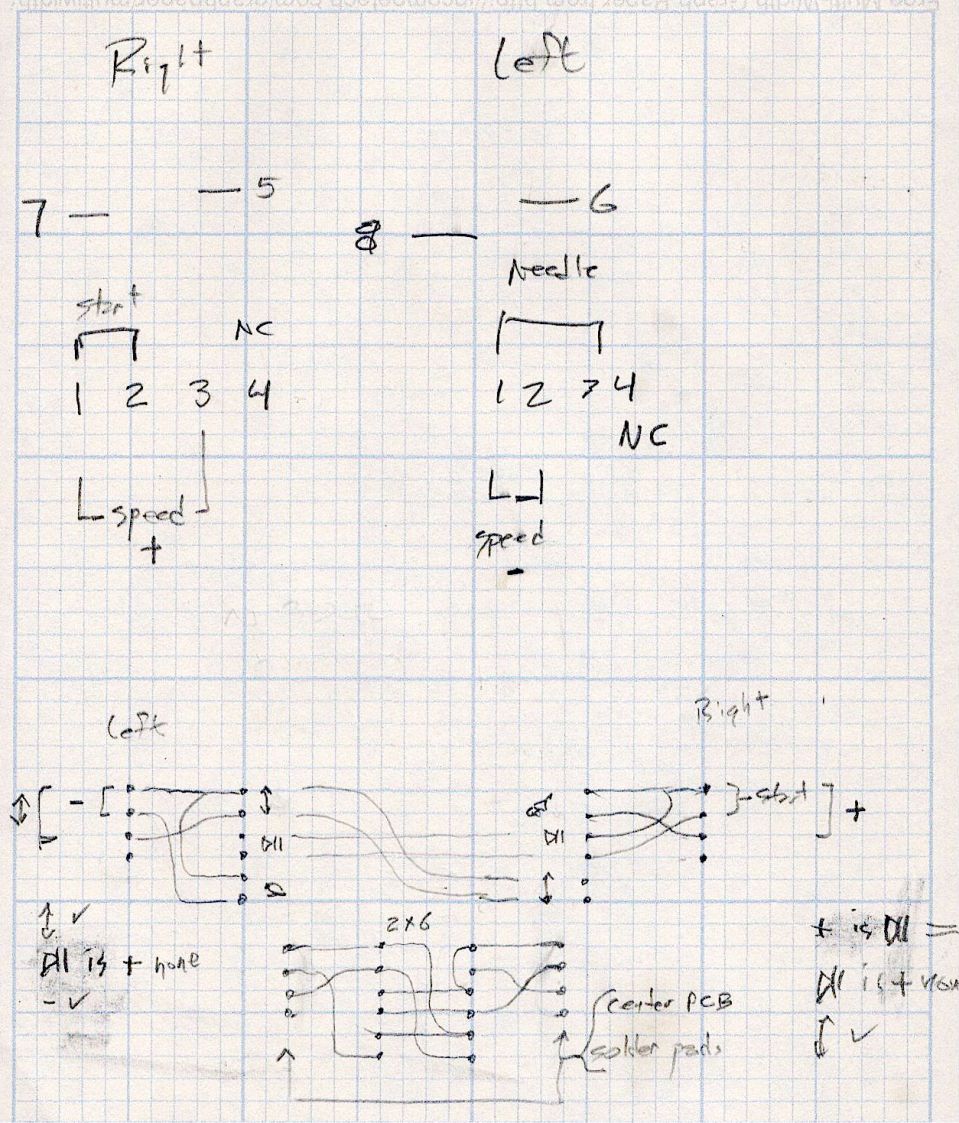 Right Left
5
7
6
8
Needle
start
NC
1 2 3 4
1 2 3 4
NC
speed
+
speed
-
Left
Right
-
start
+
2x6
is + none
-
+ is
is +
center PCB
solder pads